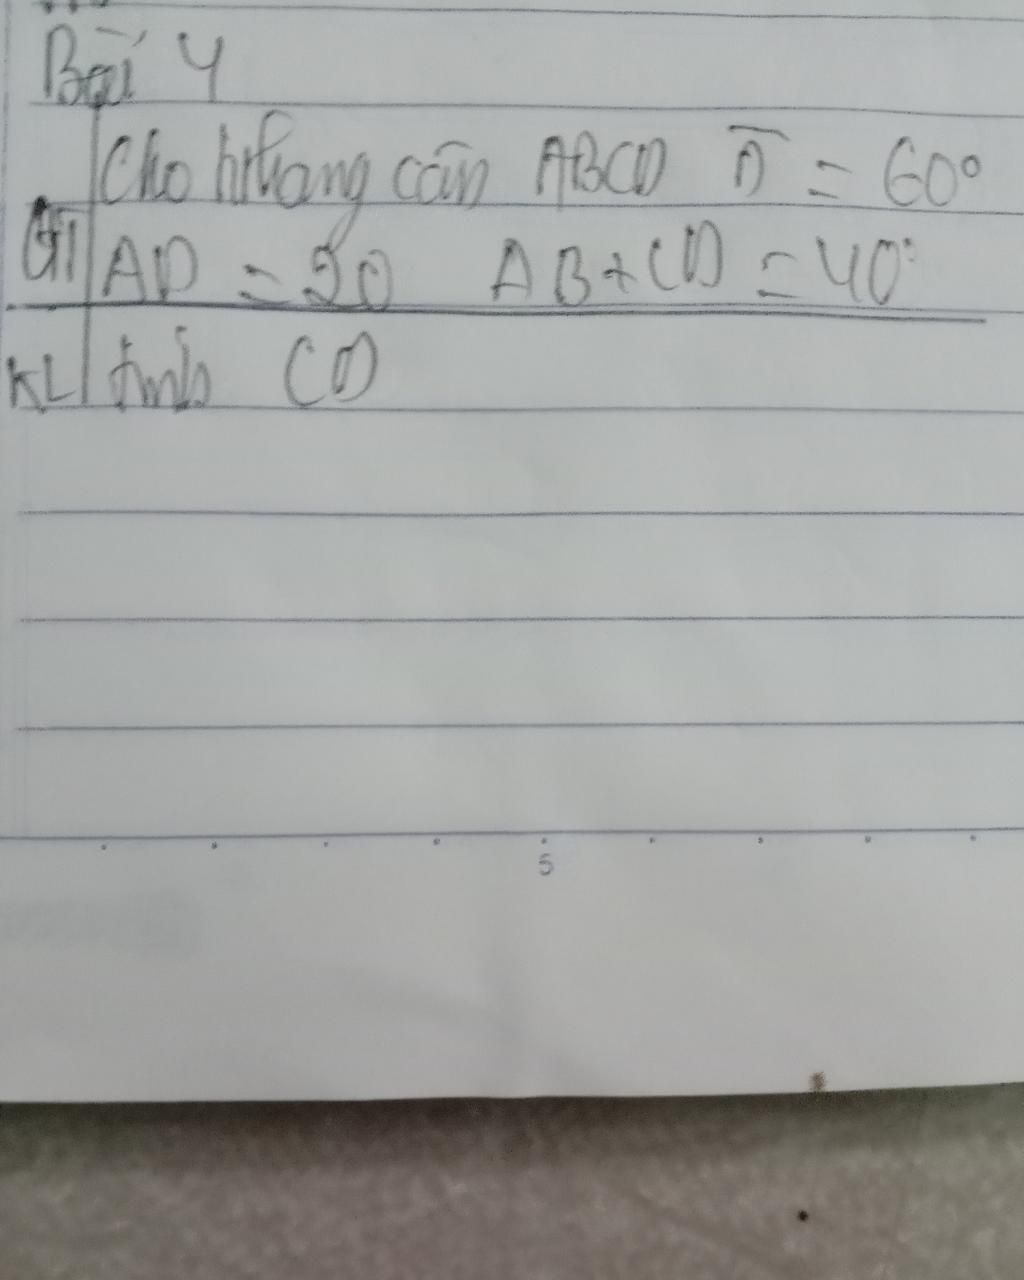 Bài 4
Cho hthang cân ABCD D = 60°
GT AD = 20 AB+CD = 40°
KL tính CD
5